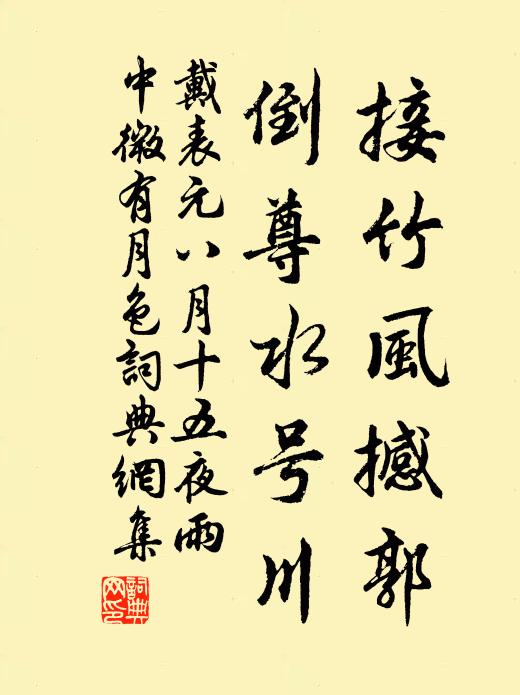 接竹風撼郭
倒尊水号川
戴表元八月十五夜雨
中微有月色詞典網集
詞典网印